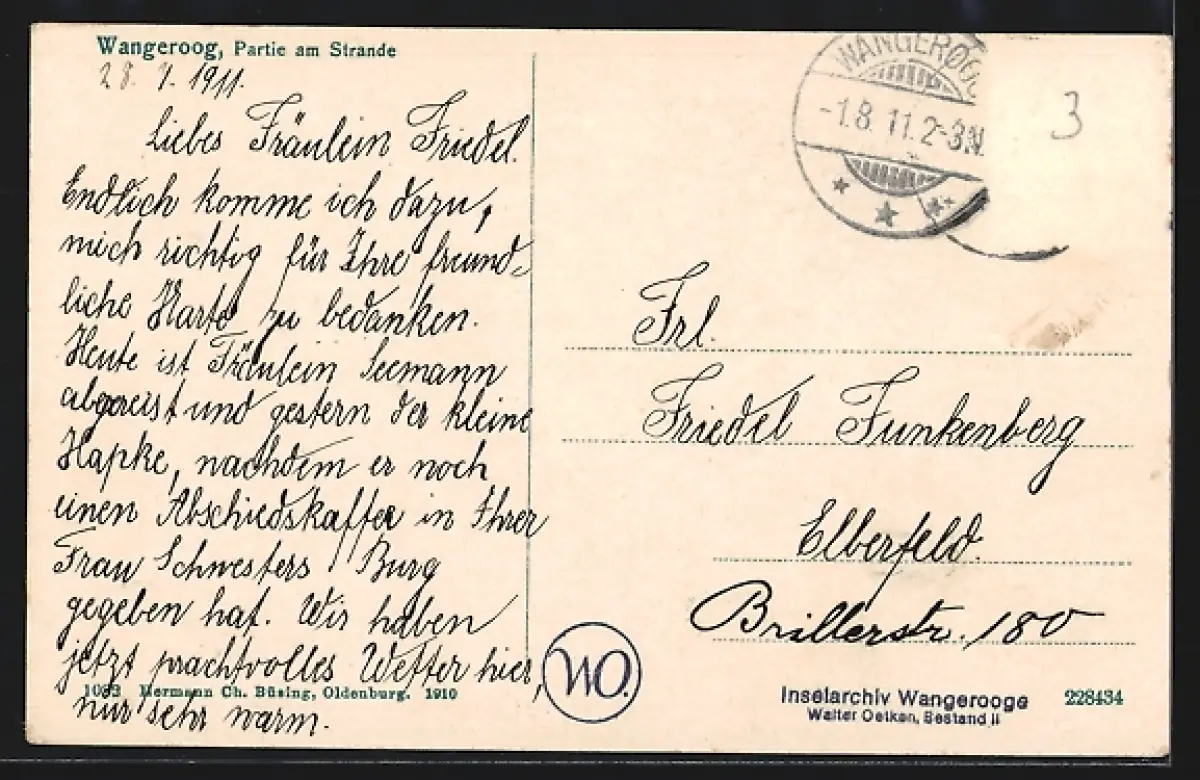 Wangeroog, Partie am Strande
28. 7. 1911.
Liebes Fräulein Friedel.
Endlich komme ich dazu,
mich richtig für Ihre freund-
liche Karte zu bedanken.
Heute ist Fräulein Seemann
abgereist und gestern der kleine
Hapke, nachdem er noch
einen Abschiedskaffee in Ihrer
Frau Schwesters Burg
gegeben hat. Wir haben
jetzt prachtvolles Wetter hier,
nur sehr warm.
1033 Hermann Ch. Büsing, Oldenburg. 1910
WANGEROOG
-1.8.11.2-3N.
3
Frl.
Friedel Funkenberg
Elberfeld.
Brillerstr. 180
WO.
Inselarchiv Wangerooge
Walter Oetken, Bestand II
228434